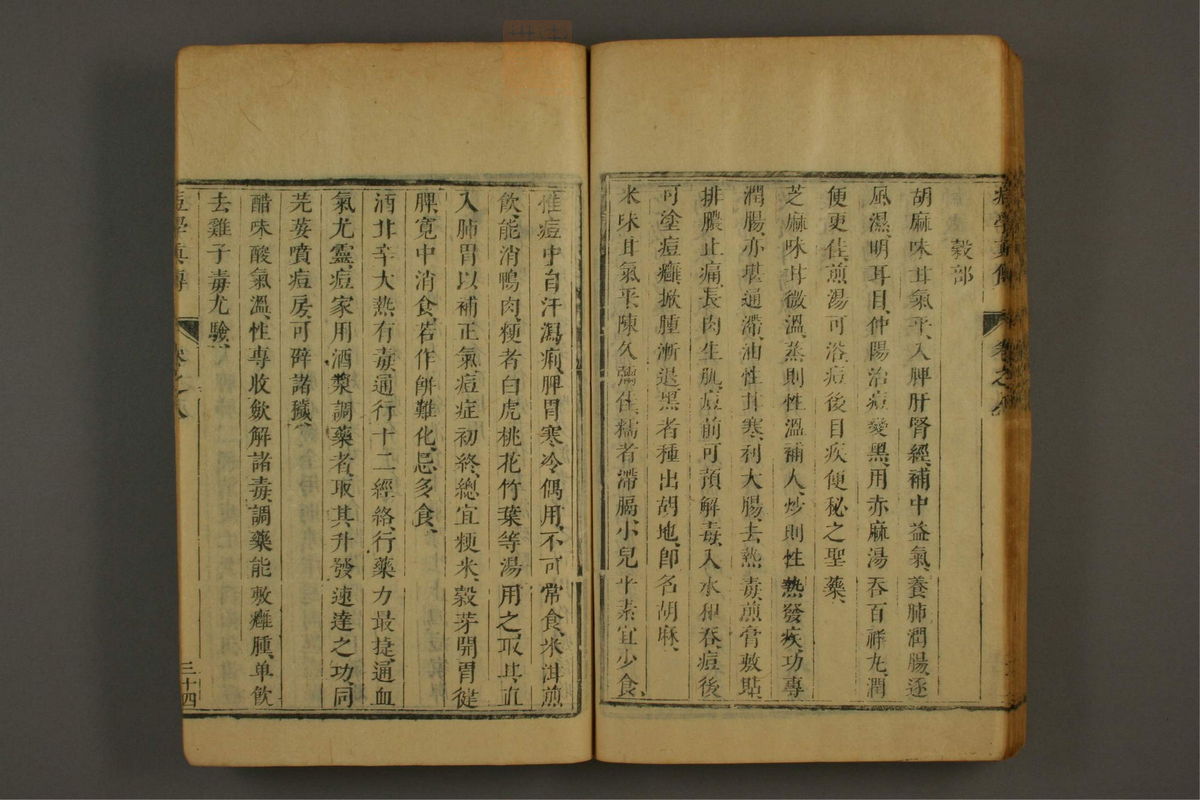 痘學真傳 卷之八
穀部
胡麻味甘氣平、入脾肝腎經、補中益氣、養肺潤腸、逐
風濕、明耳目、仲陽治痘變黑、用赤麻湯吞百祥丸、潤
便更佳、煎湯可浴、痘後目疾便秘之聖藥、
芝麻味甘微溫、蒸則性溫補人、炒則性熱發疾、功專
潤腸、亦堪通滯、油性甘寒、利大腸、去熱毒、煎膏敷貼、
排膿止痛、長肉生肌、痘前可預解毒、入水和吞、痘後
可塗痘癰、掀腫漸退、黑者種出胡地、卽名胡麻、
米味甘氣平、陳久彌佳、糯者滯膈、小兒平素宜少食、
惟痘中自汗瀉痢、脾胃寒冷偶用、不可常食、米泔煎
飲、能消鴨肉、粳者白虎桃花竹葉等湯用之、取其直
入肺胃以補正氣、痘症初終、總宜粳米、穀芽開胃健
脾、寬中消食、若作餅難化、忌多食、
酒甘辛大熱有毒、通行十二經絡、行藥力最捷、通血
氣尤靈、痘家用酒漿調藥者、取其升發速達之功、同
芫荽噴痘房、可辟諸穢、
醋味酸氣溫、性專收斂、解諸毒、調藥能敷癰腫、单飲
去雞子毒尤驗、
痘學真傳 卷之八 三十四